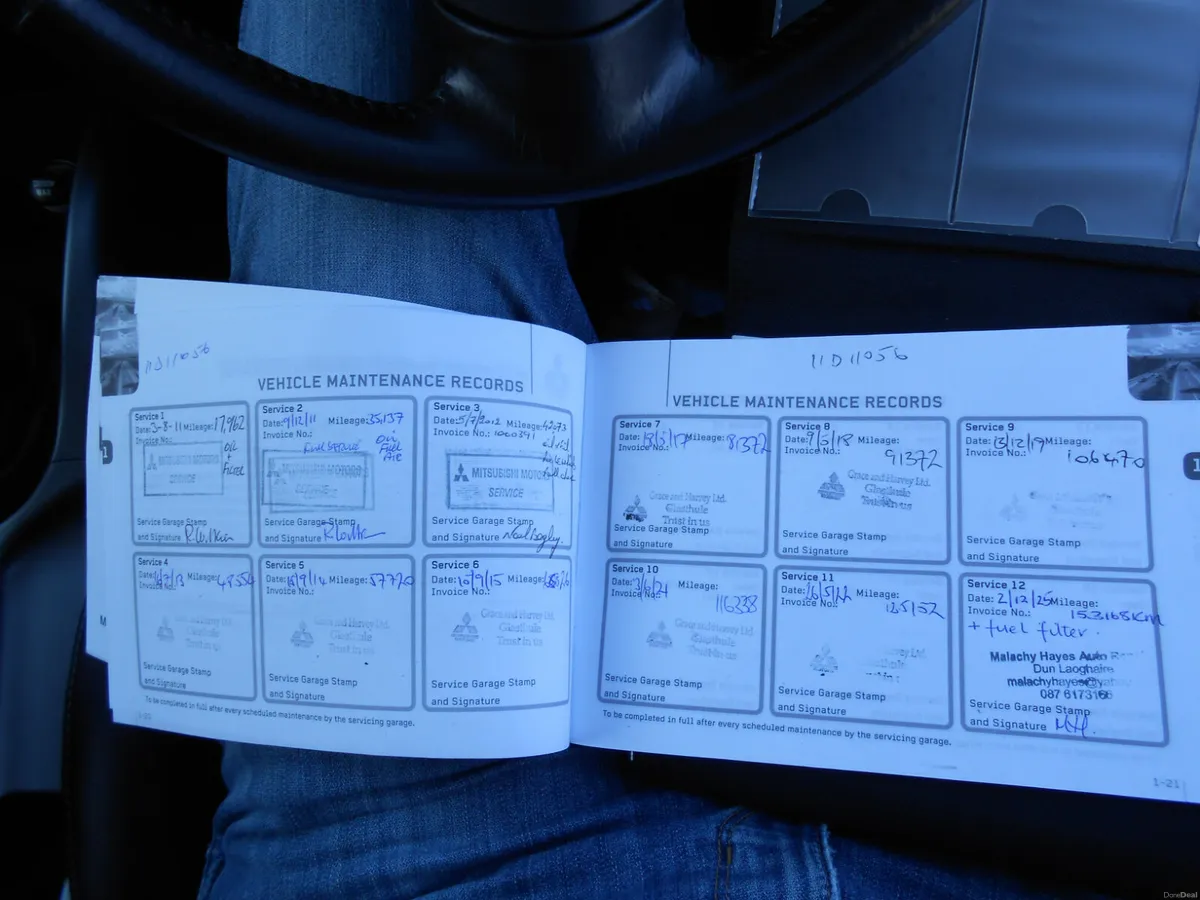 11D11056
VEHICLE MAINTENANCE RECORDS
Service 1
Date: 3-8-11 Mileage: 17,962
Invoice No.:
OIL
+
FILTER
MITSUBISHI MOTORS
SERVICE
Service Garage Stamp
and Signature
Service 2
Date: 9/12/11 Mileage: 35,137
Invoice No.:
Oil
Fuel
Air
MITSUBISHI MOTORS
Service Garage Stamp
and Signature
Service 3
Date: 5/7/2012 Mileage:
Invoice No.:
MITSUBISHI MOTORS
SERVICE
Service Garage Stamp
and Signature
Service 4
Date: Mileage: 48554
Invoice No.:
Grace and Harvey Ltd.
Glasthule
Trust in us
Service Garage Stamp
and Signature
Service 5
Date: Mileage: 57770
Invoice No.:
Grace and Harvey Ltd.
Glasthule
Trust in us
Service Garage Stamp
and Signature
Service 6
Date: 10/9/15 Mileage:
Invoice No.:
Grace and Harvey Ltd.
Glasthule
Trust in us
Service Garage Stamp
and Signature
To be completed in full after every scheduled maintenance by the servicing garage.
11D11056
VEHICLE MAINTENANCE RECORDS
Service 7
Date: Mileage: 81372
Invoice No.:
Grace and Harvey Ltd.
Glasthule
Trust in us
Service Garage Stamp
and Signature
Service 8
Date: 9/5/18 Mileage:
Invoice No.:
91372
Grace and Harvey Ltd.
Glasthule
Trust in us
Service Garage Stamp
and Signature
Service 9
Date: 13/12/19 Mileage:
Invoice No.: 106470
Service Garage Stamp
and Signature
Service 10
Date: 3/6/21 Mileage:
Invoice No.:
116338
Grace and Harvey Ltd.
Glasthule
Trust in us
Service Garage Stamp
and Signature
Service 11
Date: 16/5/22 Mileage:
Invoice No.:
Service Garage Stamp
and Signature
Service 12
Date: 2/12/25 Mileage:
Invoice No.: 153168km
+ fuel filter.
Malachy Hayes Auto
Dun Laoghaire
087 6173166
Service Garage Stamp
and Signature MH.
To be completed in full after every scheduled maintenance by the servicing garage.
1-21
DoneDeal